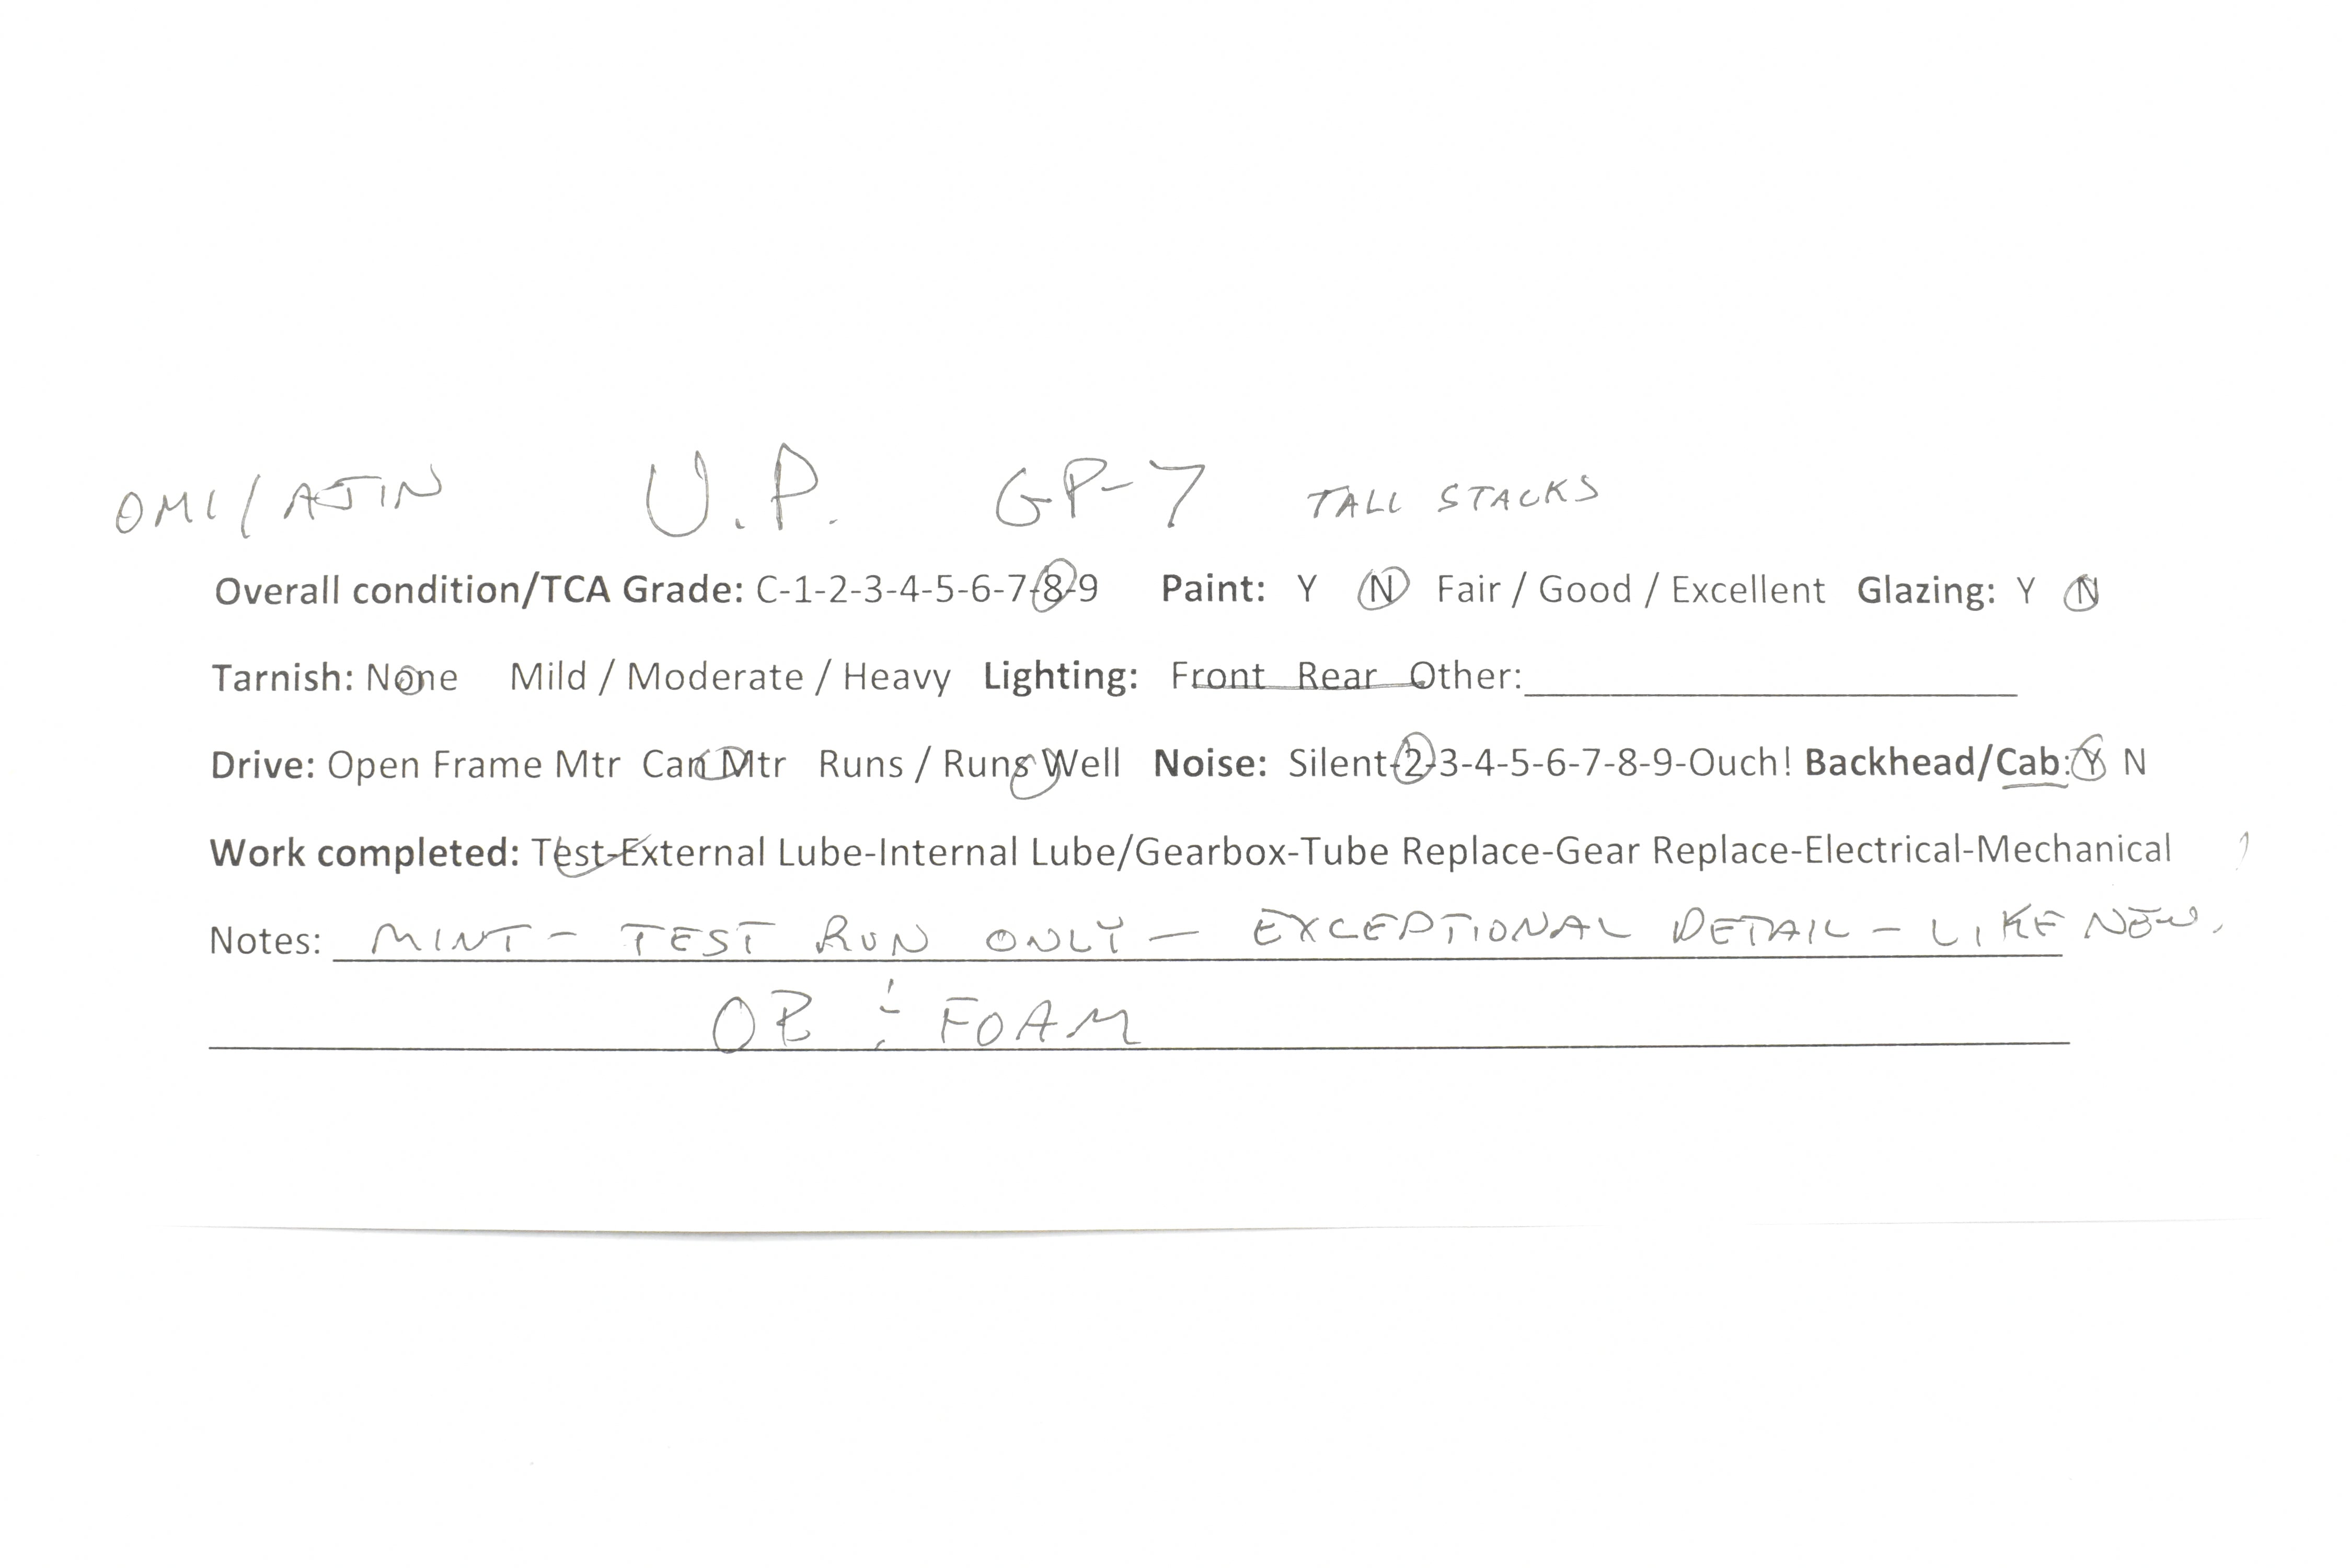 OMI/AJIN U.P. GP-7 TALL STACKS
Overall condition/TCA Grade: C-1-2-3-4-5-6-7-8-9 Paint: Y N Fair / Good / Excellent Glazing: Y N
Tarnish: None Mild / Moderate / Heavy Lighting: Front Rear Other:
Drive: Open Frame Mtr Can Mtr Runs / Runs Well Noise: Silent-2-3-4-5-6-7-8-9-Ouch! Backhead/Cab: Y N
Work completed: Test-External Lube-Internal Lube/Gearbox-Tube Replace-Gear Replace-Electrical-Mechanical
Notes: MINT - TEST RUN ONLY - EXCEPTIONAL DETAIL - LIKE NEW.
OB & FOAM